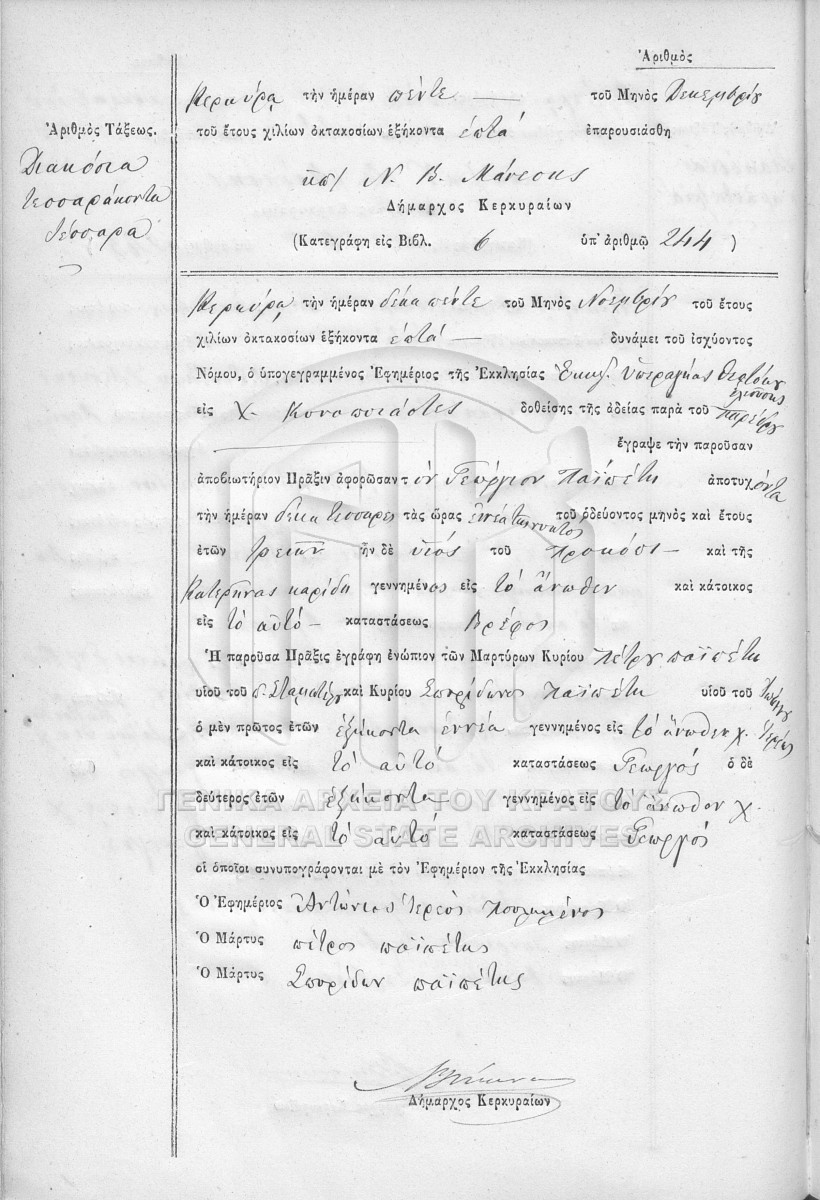 Ἀριθμὸς
Κερκύρᾳ τὴν ἡμέραν πέντε τοῦ Μηνὸς Δεκεμβρίου
Ἀριθμὸς Τάξεως.
τοῦ ἔτους χιλίων ὀκτακοσίων ἑξήκοντα ἑπτὰ ἐπαρουσιάσθη
Διακόσια
τεσσαράκοντα
τέσσαρα
Ν. Β. Μάνεσης
Δήμαρχος Κερκυραίων
(Κατεγράφη εἰς Βιβλ. 6 ὑπ' ἀριθμῷ 244 )
Κερκύρᾳ, τὴν ἡμέραν δέκα πέντε τοῦ Μηνὸς Νοεμβρίου τοῦ ἔτους
χιλίων ὀκτακοσίων ἑξήκοντα ἑπτὰ δυνάμει τοῦ ἰσχύοντος
Νόμου, ὁ ὑπογεγραμμένος Ἐφημέριος τῆς Ἐκκλησίας Ἐκκλ. Ὑπεραγίας Θεοτόκου
ἐλεούσης
εἰς χ. Κυναπιάστες δοθείσης τῆς ἀδείας παρὰ τοῦ παρέδρου
ἔγραψε τὴν παροῦσαν
ἀποβιωτήριον Πρᾶξιν ἀφορῶσαν τὸν Γεώργιον Παϊπέτη ἀποτυχόντα
τὴν ἡμέραν δέκα τέσσαρες τὰς ὥρας ἐννέα τῆς νυκτὸς τοῦ ὁδεύοντος μηνὸς καὶ ἔτους
ἐτῶν τριῶν ἦν δὲ υἱὸς τοῦ Προκόπι καὶ τῆς
Κατερήνας καρίδη γεννημένος εἰς τὸ ἄνωθεν καὶ κάτοικος
εἰς τὸ αὐτὸ καταστάσεως Βρέφος
Ἡ παροῦσα Πρᾶξις ἐγράφη ἐνώπιον τῶν Μαρτύρων Κυρίου Πέτρου παϊπέτη
υἱοῦ τοῦ π. Σταματέλου καὶ Κυρίου Σπυρίδωνος Παϊπέτη υἱοῦ τοῦ
ὁ μὲν πρῶτος ἐτῶν ἑξήκοντα ἐννέα γεννημένος εἰς τὸ ἄνωθεν χ. ἱερέως
καὶ κάτοικος εἰς τὸ αὐτὸ καταστάσεως Γεωργός ὁ δὲ
δεύτερος ἐτῶν ἑξήκοντα γεννημένος εἰς τὸ ἄνωθεν χ.
ΓΕΝΙΚΑ ΑΡΧΕΙΑ ΤΟΥ ΚΡΑΤΟΥΣ
καὶ κάτοικος εἰς τὸ αὐτὸ καταστάσεως Γεωργός
GENERAL STATE ARCHIVES
οἱ ὁποῖοι συνυπογράφονται μὲ τὸν Ἐφημέριον τῆς Ἐκκλησίας
Ὁ Ἐφημέριος Ἀντώνιος Ἱερεὸς Πουλημένος
Ὁ Μάρτυς πέτρος παϊπέτης
Ὁ Μάρτυς Σπυρίδων παϊπέτης
Δήμαρχος Κερκυραίων